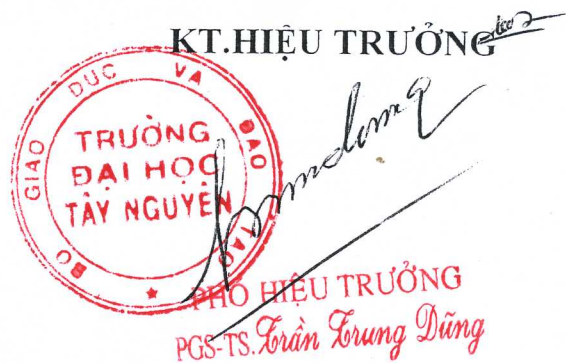 KT.HIỆU TRƯỞNG
BO GIAO DUC VA ĐAO TAO
TRƯỜNG
ĐẠI HỌC
TÂY NGUYÊN
PHÓ HIỆU TRƯỞNG
PGS-TS. Trần Trung Dũng